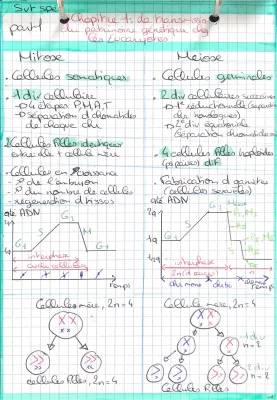 SVT spé
part 1
Chapitre 1: la transmission
du patrimoine génétique chez
les Eucaryotes
Mitose
• Cellules somatiques
• 1 div cellulaire
→ 4 étapes P.M.A.T
→ séparation d chromatides
de chaque chr
2 Cellules filles identiques
entre elle + cellule mère
• Cellules en croissance
→ du nombre de cellules
→ regénération d tissus
qté ADN
G1
S
G2
M
G1
interphase
cycle cellulaire
temps
Cellule mère, 2n = 4
cellules filles, 2n = 4
Méiose
• Cellules germinales
2 div cellulaires successives
→ 1° réductionnelle (séparation
des homologues)
→ 2° div équationnelle
(séparation chromatides)
• 4 cellules filles haploïdes
• Fabrication d gamètes
(cellules sexuelles)
qté ADN
2q
q
G1
S
G2
interphase
temps
Cellule mère, 2n = 4
1 div
n = 2
2 div
n = 2
Cellules filles